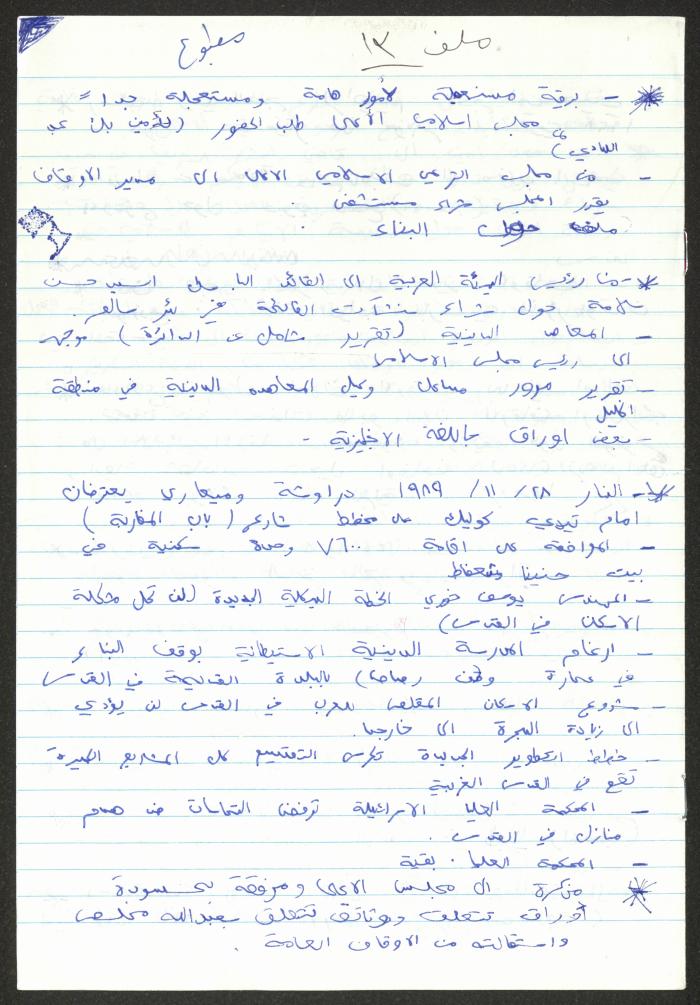 ملف ١٣ مطبوع
- برقية مستعجلة لأمور هامة ومستعجلة جداً =
مجلس اسلامي الأعلى طلب الحضور (للأمين بك عبد
الهادي)
- من مجلس الشرعي الاسلامي الاعلى الى مدير الاوقاف
يقرر المجلس شراء مستشفى .
ملف حول البناء
- من رئيس الهيئة العربية الى القائد السيد حسن
سلامة حول شراء منشآت القائمة في بئر سالم .
- المعاهد الدينية (تقرير شامل عن الدائرة) موجه
الى رئيس مجلس الاسلامي
- تقرير المعاهد الدينية في منطقة
الخليل
- بعض اوراق باللغة الانجليزية -
- النار ٢٨ / ١١ / ١٩٨٩ دراوشة وميعاري يعترضان
امام تيدي كوليك على مخطط شارع (باب المغاربة)
- الموافقة على اقامة ٧٦٠٠ وحدة سكنية في
بيت حنينا وشعفاط
- المهندس يوسف خوري الخطة الهيكلية الجديدة (لن تحل مشكلة
الاسكان في القدس)
- ارغام المدرسة الدينية الاستيطانية بوقف البناء
في عمارة وقف رصاص) بالبلدة القديمة في القدس
- مشروع الاسكان المقلص للعرب في القدس لن يؤدي
الى زيادة الهجرة الى خارجها .
- خطط التطوير الجديدة تكرس التقسيم كل المشاريع الكبيرة
تقع في القدس الغربية
- المحكمة العليا الاسرائيلية ترفض التماسات ضد هدم
منازل في القدس .
- المحكمة العليا . بقية
مذكرة الى مجلس الاعلى ومرفقة بمسودة
أوراق تتعلق ووثائق تتعلق بعبدالله مخلص
واستقالته من الاوقاف العامة .